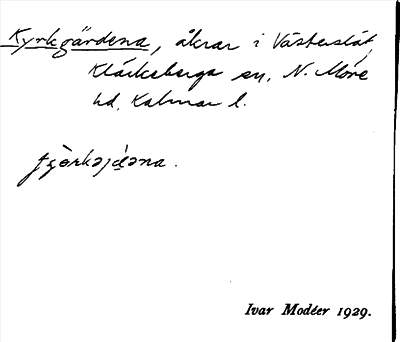 Kyrkgärdena, åkrar i Västerslät,
Kläckeberga sn, N. Möre
hd, Kalmar l.
Ivar Modéer 1929.